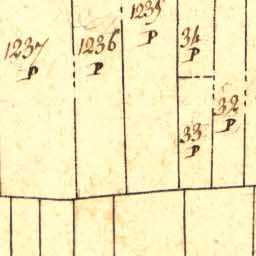 1237
P
1236
P
1235
P
34
P
33
P
32
P